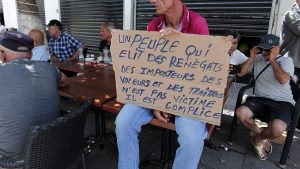 UN PEUPLE QUI
ELIT DES RENEGATS
DES IMPOSTEURS DES
VOLEURS ET DES TRAITRES
N'EST PAS VICTIME
IL EST COMPLICE